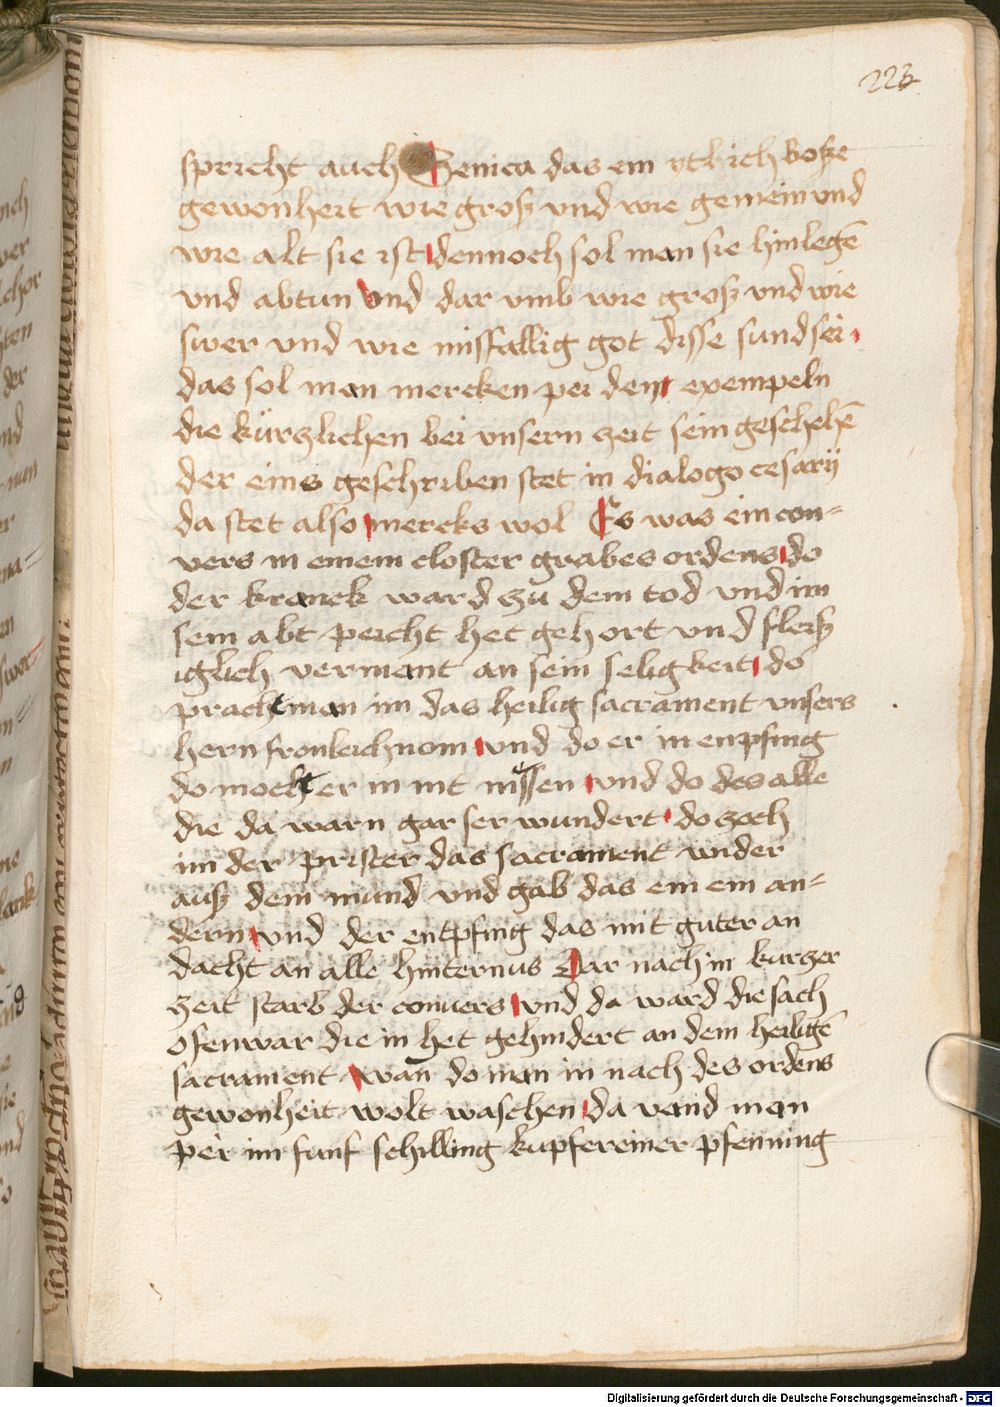 223
spricht auch Senica das ein ytlich boße
gewonheit wie groß vnd wie gemein vnd
wie alt sie ist dennoch sol man sie hinlegē
vnd abtun vnd dar vmb wie groß vnd wie
swer vnd wie missfallig got disse sund sei
das sol man mercken pei den exempeln
die kürczlichen bei vnsern zeit sein geschehē
der eins geschriben stet in dialogo cesarij
da stet also mercks wol Es was ein con-
vers in einem closter grabes ordens do
der kranck ward zu dem tod vnd im
sein abt peicht het gehort vnd fleiß
iglich vermant an sein seligkeit do
pracht man im das heilig sacrament vnsers
hern fronleichnom vnd do er in enpfing
do mocht er in nit nissen vnd do des alle
die da warn gar ser wundert do zoch
im der prister das sacrament wider
auß dem mund vnd gab das ein ein an-
dern vnd der entpfing das mit guter an
dacht an alle hinternus Dar nach in kurczer
zeit starb der conuers vnd da ward die sach
ofenwar die in het gehindert an dem heiligē
sacrament wan̄ do man in nach des ordens
gewonheit wolt waschen da vand man
per im funf schilling kupfereiner pfenning
Digitalisierung gefördert durch die Deutsche Forschungsgemeinschaft - DFG